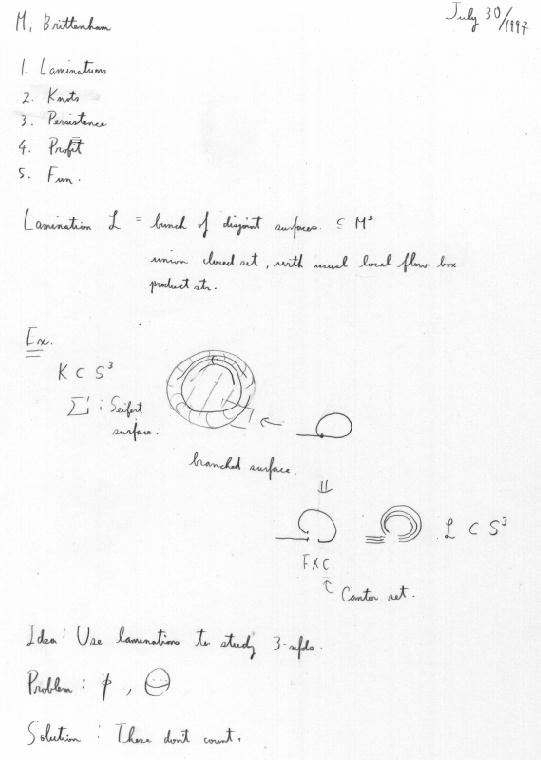 M. Brittenham
July 30/1997
1. Laminations
2. Knots
3. Persistence
4. Profit
5. Fun.
Lamination L = bunch of disjoint surfaces. ⊆ M³
union closed set, with usual local flow box
product str.
Ex.
K ⊂ S³
Σ : Seifert
surface.
branched surface.
L ⊂ S³
F×C
Cantor set.
Idea : Use laminations to study 3-mfds.
Problem : ,
Solution : These don't count.